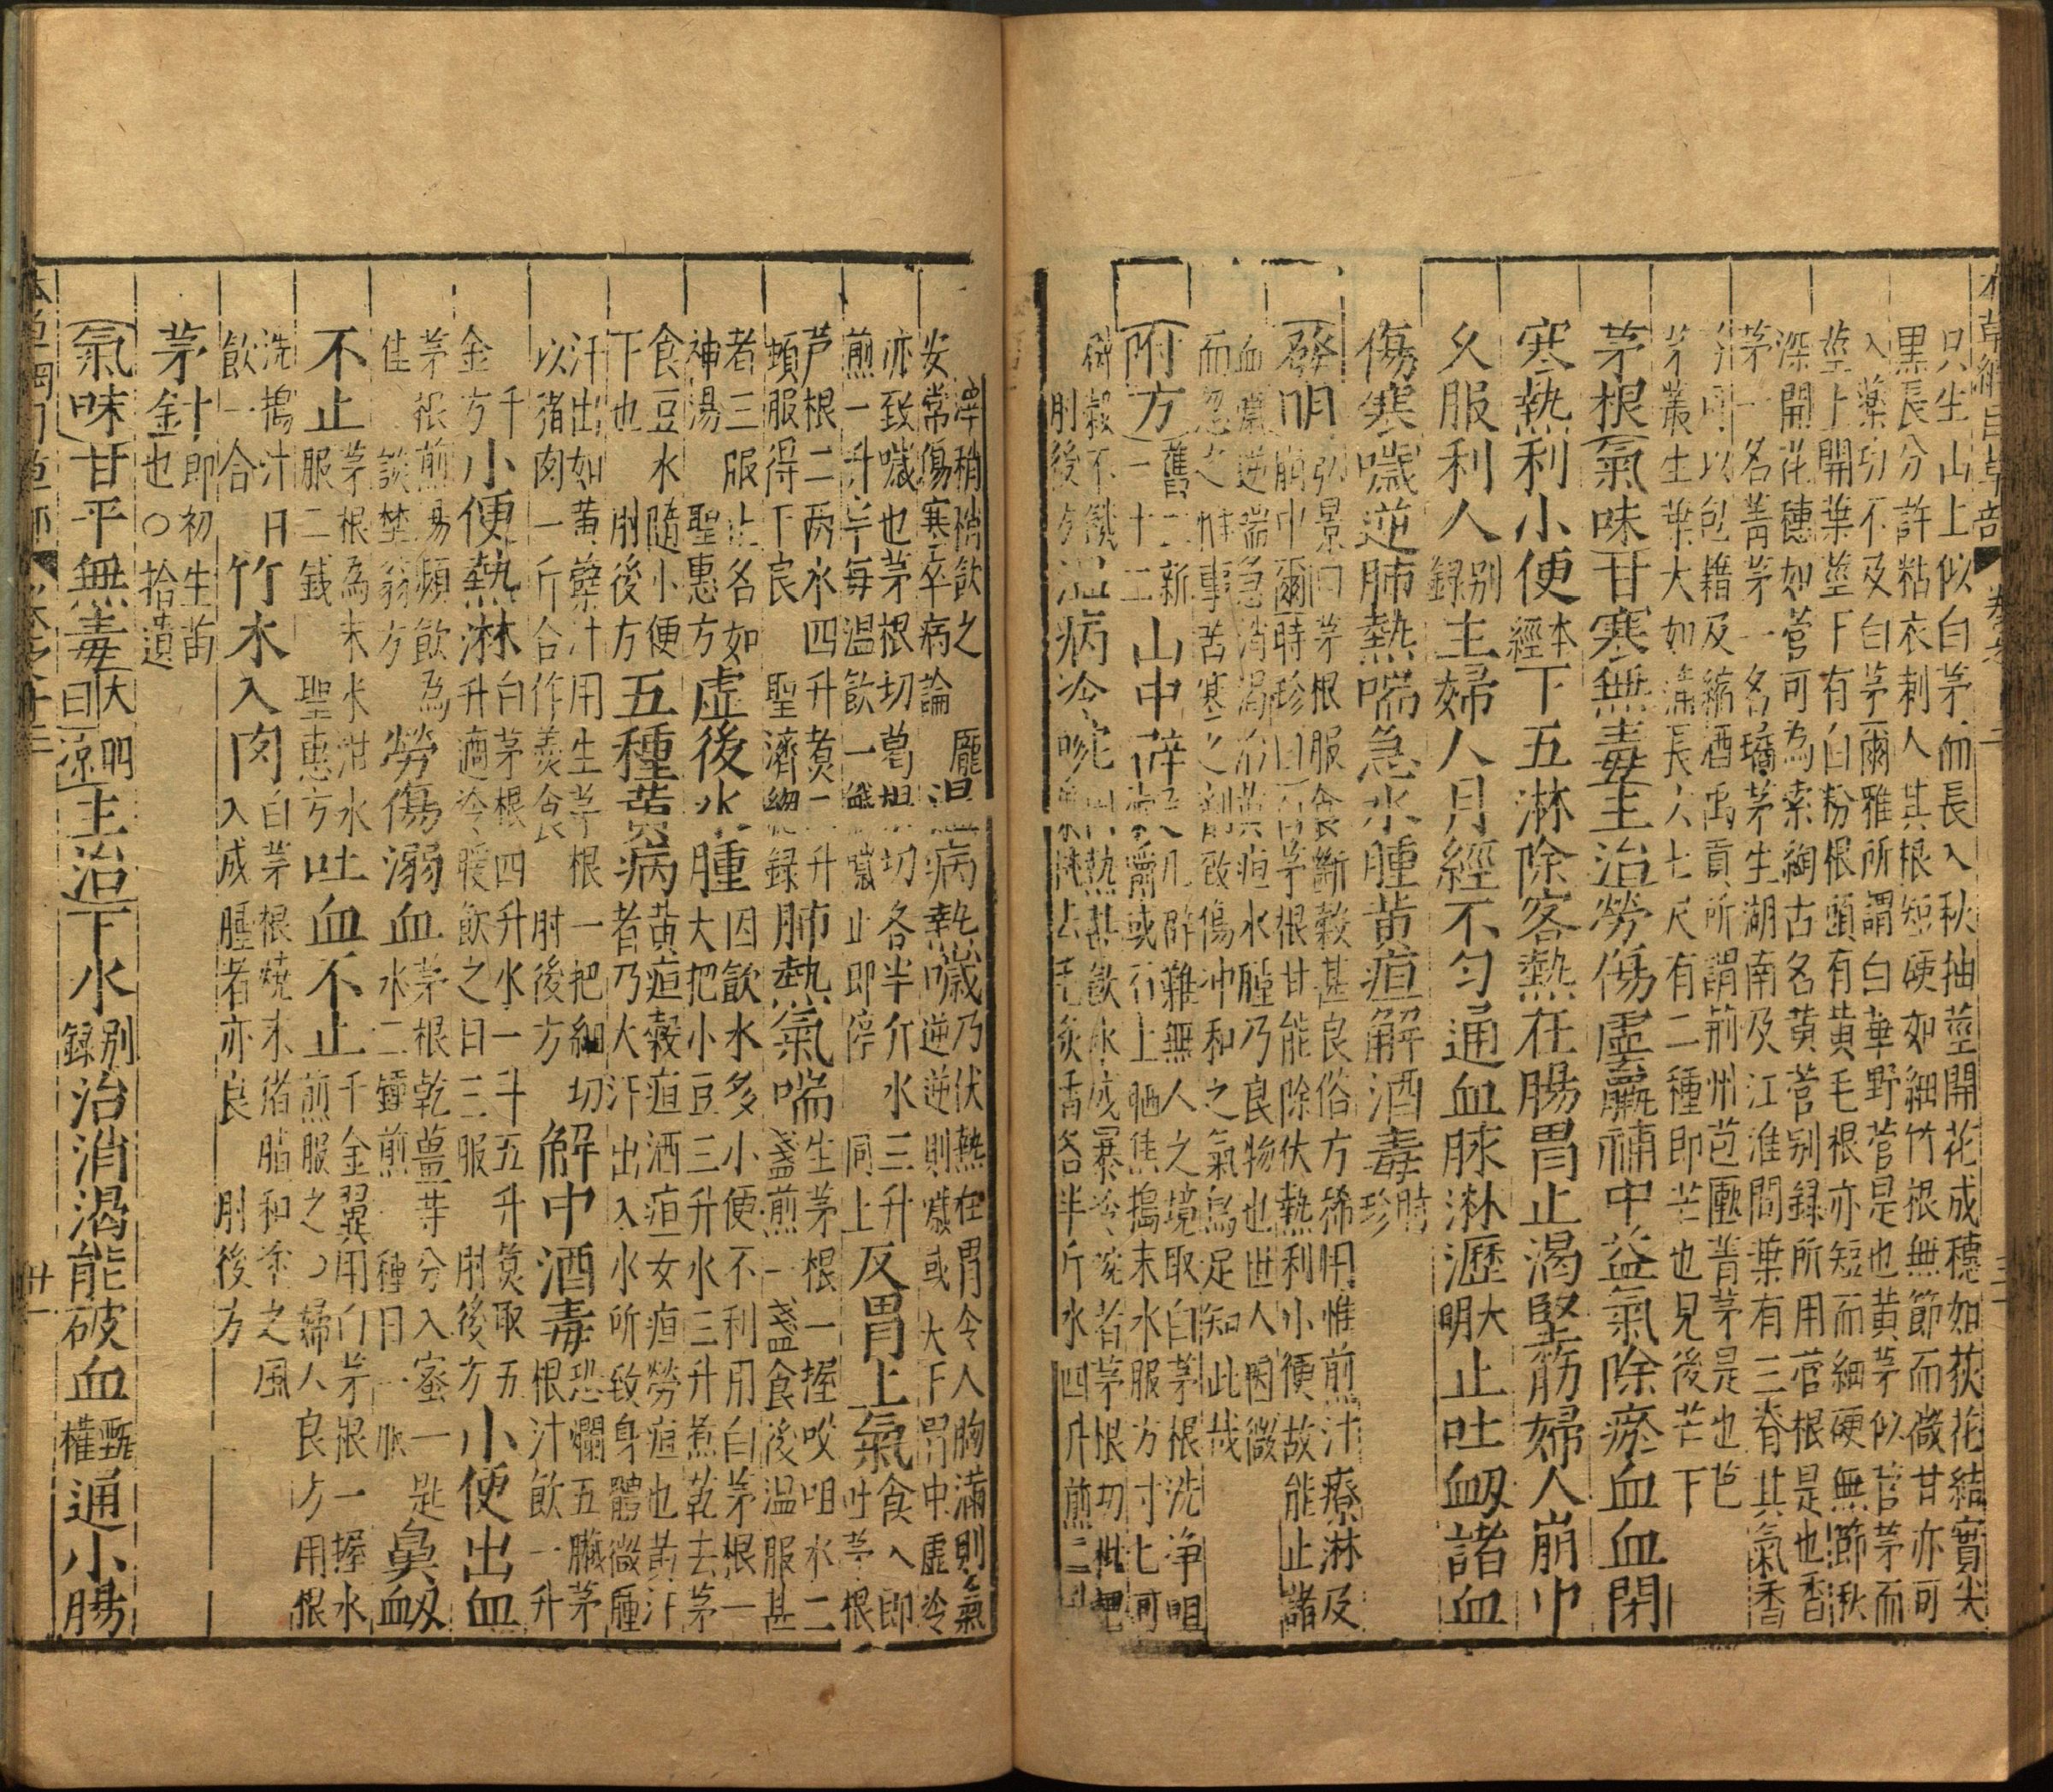 本草綱目草部
只生山上似白茅而長入秋抽莖開花成穗如荻花結實尖
黒長分許粘衣刺人其根短硬如細竹根無節而微甘亦可
入藥功不及白茅爾雅所謂白華野菅是也黄茅似菅茅而
莖上開葉莖下有白粉根頭有黄毛根亦短而細硬無節秋
深開花穗如菅可為索綯古名黄菅别録所用菅根是也香
茅一名菁茅一名璚茅生湖南及江淮間葉有三脊其氣香
芬可以包藉及縮酒禹貢所謂荊州苞匭菁茅是也芭
茅叢生葉大如蒲長六七尺有二種即芒也見後芒下
茅根氣味甘寒無毒主治勞傷虛羸補中益氣除瘀血血閉
寒熱利小便本經下五淋除客熱在腸胃止渴堅筋婦人崩中
久服利人别録主婦人月經不勻通血脉淋瀝大明止吐衂諸血
傷寒噦逆肺熱喘急水腫黄疸解酒毒時珍
發明弘景曰茅根服食斷穀甚良俗方稀用惟煎汁療淋及
崩中爾時珍曰白茅根甘能除伏熱利小便故能止諸
血噦逆喘急消渴治黄疸水腫乃良物也世人因微
而忽之惟事苦寒之劑致傷冲和之氣烏足知此哉
附方舊二新一十二山中辟穀凡辟難無人之境取白茅根洗净咀
嚼或石上晒焦搗末水服方寸匕可
辟穀不飢肘後方温病冷啘因熱甚飲水成暴冷啘者茅根切枇杷
葉拭去毛炙香各半斤水四升煎二升
滓稍稍飲之龐安常傷寒卒病論温病熱噦乃伏熱在胃令人胸滿則氣
逆逆則噦或大下胃中虛冷
亦致噦也茅根切葛根切各半斤水三升
煎一升半每温飲一盞噦止即停同上反胃上氣食入即吐茅根
芦根二两水四升煑二升
頓服得下良聖濟總録肺熱氣喘生茅根一握㕮咀水二
盞煎一盞食後温服甚
者三服止名如神湯聖惠方虛後水腫因飲水多小便不利用白茅根一
大把小豆三升水三升煮乾去茅
食豆水隨小便下也肘後方五種黄病黄疸穀疸酒疸女疸勞疸也黄汗
者乃大汗出入水所致身體微腫
汗出如黄蘗汁用生茅根一把細切
以猪肉一斤合作羮食肘後方解中酒毒恐爛五臟茅
根汁飲一升
千金方小便熱淋白茅根四升水一斗五升煑取五
升適冷暖飲之日三服肘後方小便出血
茅根煎湯頻飲為佳談埜翁方勞傷溺血茅根乾薑等分入蜜一匙
水二鍾煎一鍾日一服鼻衂
不止茅根為末米泔水服二錢聖惠方吐血不止千金翼用白茅根一握水
煎服之婦人良方用根
洗搗汁日飲一合竹木入肉白茅根燒末猪脂和塗之風
入成腫者亦良肘後方
茅針即初生苗也○拾遺
氣味甘平無毒大明曰凉主治下水别録治消渴能破血甄權通小腸
廿一